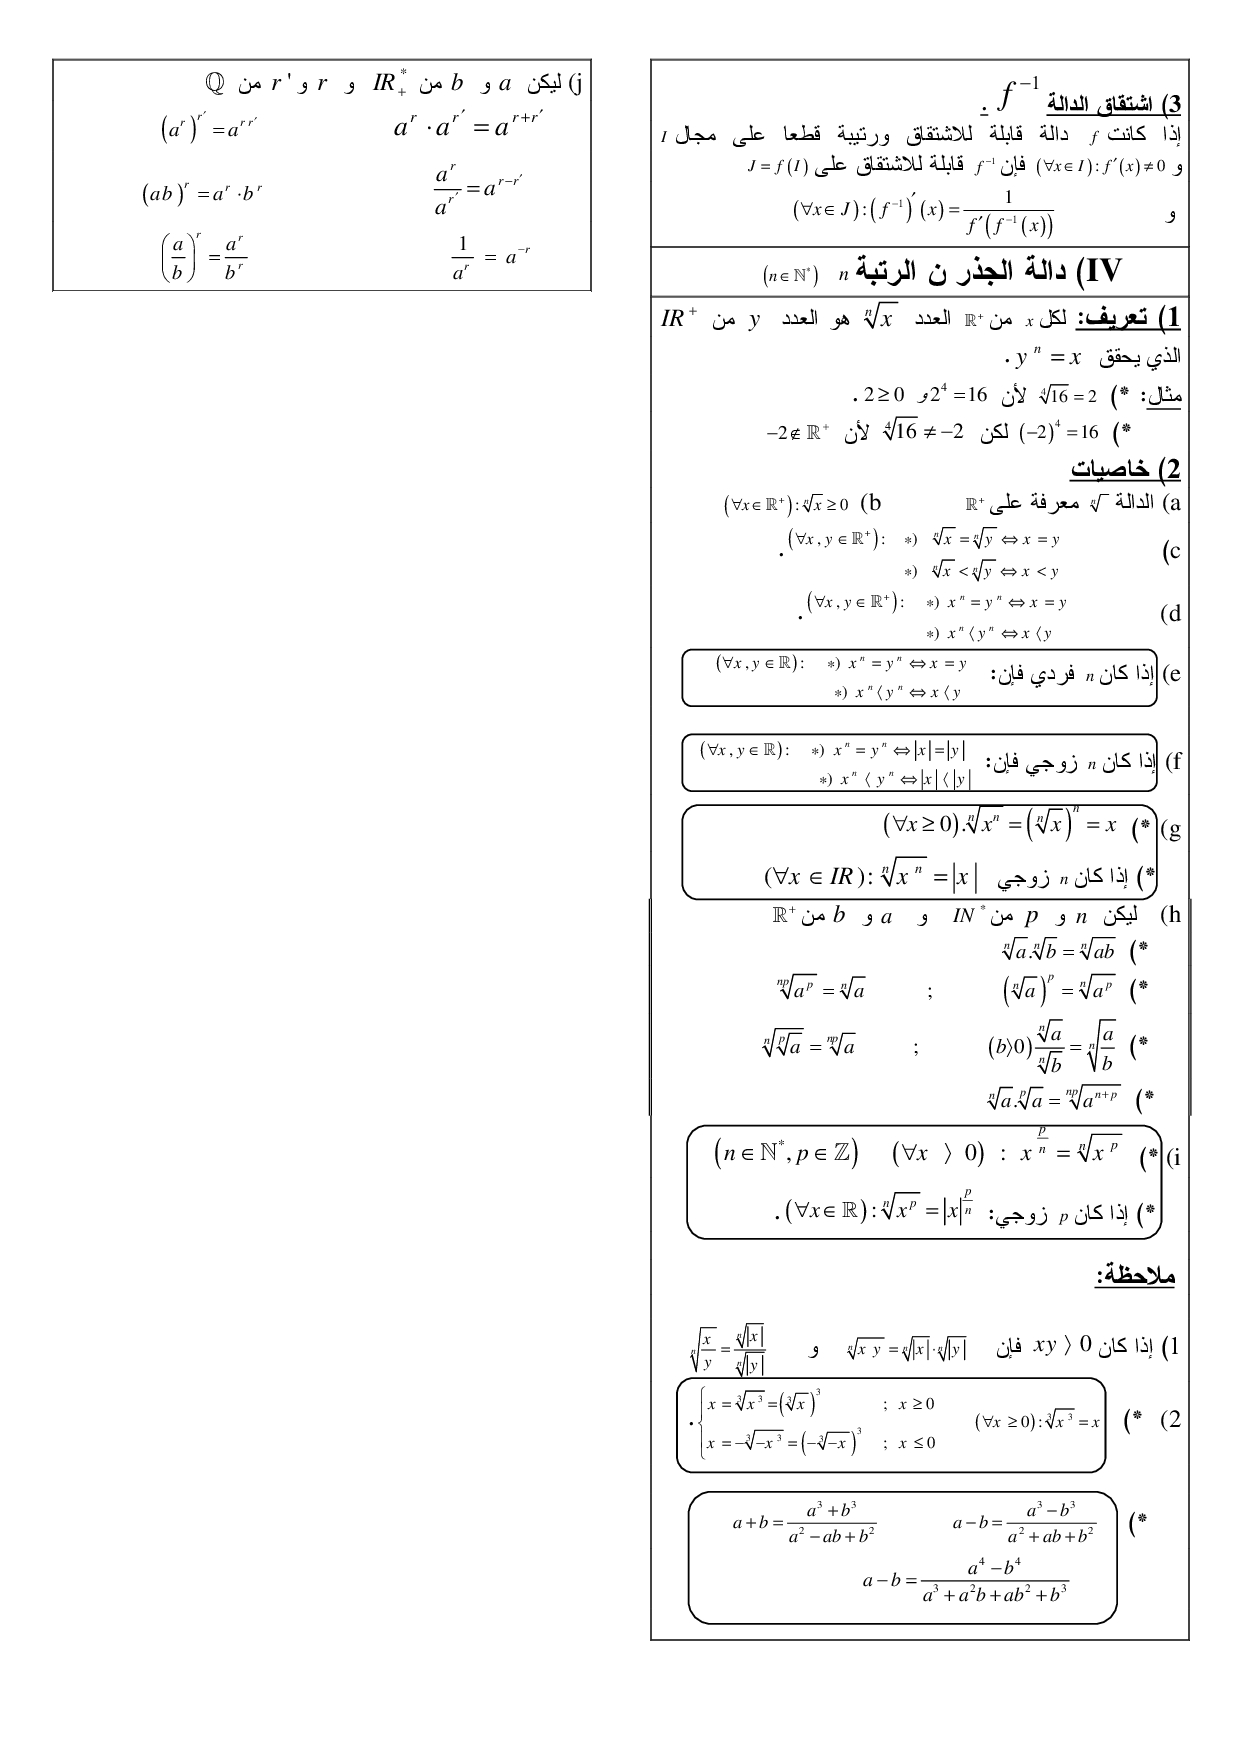 3) اشتقاق الدالة f⁻¹ .
إذا كانت f دالة قابلة للاشتقاق ورتيبة قطعا على مجال I
و (∀x∈I): f′(x)≠0 فإن f⁻¹ قابلة للاشتقاق على J = f(I)
و (∀x∈J): (f⁻¹)′(x) = 1 / f′(f⁻¹(x))
IV) دالة الجذر ن الرتبة n (n∈ℕ*)
1) تعريف: لكل x من ℝ⁺ العدد ⁿ√x هو العدد y من IR⁺
الذي يحقق yⁿ = x .
مثال: *) ⁴√16 = 2 لأن 2⁴ = 16 و 2 ≥ 0 .
*) (−2)⁴ = 16 لكن ⁴√16 ≠ −2 لأن −2 ∉ ℝ⁺
2) خاصيات
a) الدالة ⁿ√ معرفة على ℝ⁺ b) (∀x∈ℝ⁺): ⁿ√x ≥ 0
c) (∀x, y ∈ ℝ⁺): *) ⁿ√x = ⁿ√y ⇔ x = y .
*) ⁿ√x < ⁿ√y ⇔ x < y
d) (∀x, y ∈ ℝ⁺): *) xⁿ = yⁿ ⇔ x = y .
*) xⁿ ⟨ yⁿ ⇔ x ⟨ y
e) إذا كان n فردي فإن: (∀x, y ∈ ℝ): *) xⁿ = yⁿ ⇔ x = y
*) xⁿ ⟨ yⁿ ⇔ x ⟨ y
f) إذا كان n زوجي فإن: (∀x, y ∈ ℝ): *) xⁿ = yⁿ ⇔ |x| = |y|
*) xⁿ ⟨ yⁿ ⇔ |x| ⟨ |y|
g) *) (∀x ≥ 0). ⁿ√(xⁿ) = (ⁿ√x)ⁿ = x
*) إذا كان n زوجي (∀x ∈ IR): ⁿ√(xⁿ) = |x|
h) ليكن n و p من IN* و a و b من ℝ⁺
*) ⁿ√a.ⁿ√b = ⁿ√(ab)
*) (ⁿ√a)ᵖ = ⁿ√(aᵖ) ; ⁿᵖ√(aᵖ) = ⁿ√a
*) (b⟩0) ⁿ√a / ⁿ√b = ⁿ√(a/b) ; ⁿ√(ᵖ√a) = ⁿᵖ√a
*) ⁿ√a.ᵖ√a = ⁿᵖ√(aⁿ⁺ᵖ)
i) *) (n∈ℕ*, p∈ℤ) (∀x ⟩ 0) : x^(p/n) = ⁿ√(xᵖ)
*) إذا كان p زوجي: (∀x∈ℝ): ⁿ√(xᵖ) = |x|^(p/n) .
ملاحظة:
1) إذا كان xy ⟩ 0 فإن ⁿ√(x y) = ⁿ√|x|·ⁿ√|y| و ⁿ√(x/y) = ⁿ√|x| / ⁿ√|y|
2) *) (∀x ≥ 0): ³√(x³) = x { x = ³√(x³) = (³√x)³ ; x ≥ 0 .
x = −³√(−x³) = (−³√(−x))³ ; x ≤ 0
*) a − b = (a³ − b³) / (a² + ab + b²) a + b = (a³ + b³) / (a² − ab + b²)
a − b = (a⁴ − b⁴) / (a³ + a²b + ab² + b³)
j) ليكن a و b من IR₊* و r و r' من ℚ
aʳ · aʳ′ = aʳ⁺ʳ′ (aʳ)ʳ′ = aʳʳ′
aʳ / aʳ′ = aʳ⁻ʳ′ (ab)ʳ = aʳ · bʳ
1 / aʳ = a⁻ʳ (a/b)ʳ = aʳ / bʳ